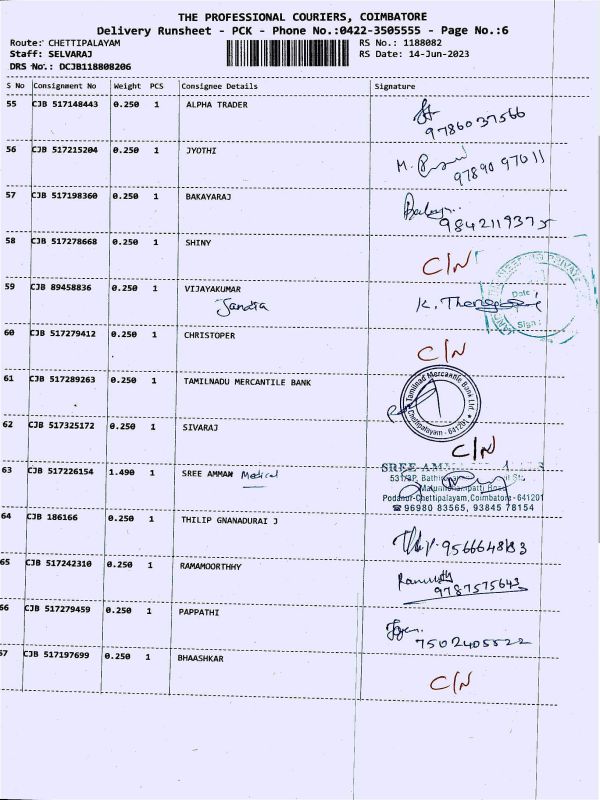 THE PROFESSIONAL COURIERS, COIMBATORE
Delivery Runsheet - PCK - Phone No.:0422-3505555 - Page No.:6
Route: CHETTIPALAYAM RS No.: 1188082
Staff: SELVARAJ RS Date: 14-Jun-2023
DRS No.: DCJB118808206
S No Consignment No Weight PCS Consignee Details Signature
55 CJB 517148443 0.250 1 ALPHA TRADER
9786037566
56 CJB 517215204 0.250 1 JYOTHI
97890 97011
57 CJB 517198360 0.250 1 BAKAYARAJ
9842119375
58 CJB 517278668 0.250 1 SHINY C/N
59 CJB 89458836 0.250 1 VIJAYAKUMAR
Date :
Sign :
60 CJB 517279412 0.250 1 CHRISTOPER C/N
61 CJB 517289263 0.250 1 TAMILNADU MERCANTILE BANK
Tamilnad Mercantile Bank Ltd.
Chettipalayam - 641201
62 CJB 517325172 0.250 1 SIVARAJ C/N
63 CJB 517226154 1.490 1 SREE AMMAN Medical
SREE
Podanur-Chettipalayam,Coimbatore-641201
☎ 96980 83565, 93845 78154
64 CJB 186166 0.250 1 THILIP GNANADURAI J
65 CJB 517242310 0.250 1 RAMAMOORTHHY
9787575643
66 CJB 517279459 0.250 1 PAPPATHI
7502405522
57 CJB 517197699 0.250 1 BHAASHKAR C/N